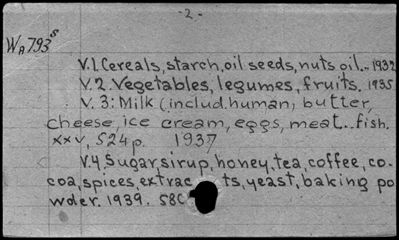 - 2 -
WA793s
V.1 Cereals, starch, oil seeds, nuts oil.. 1932
V.2. Vegetables, legumes, fruits. 1935
V. 3: Milk (includ.human, butter,
cheese, ice cream, eggs, meat.. fish.
xxv, 524 p. 1937
V.4. Sugar, sirup, honey, tea, coffee, co-
coa, spices, extrac ts, yeast, baking po
wder. 1939. 580